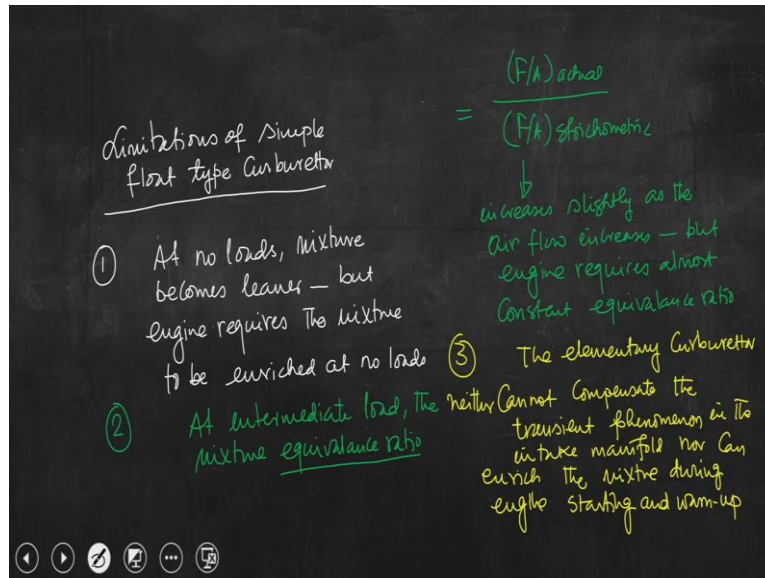 Limitations of simple
float type Carburettor
① At no loads, mixture
becomes leaner – but
engine requires the mixture
to be enriched at no loads
② At intermediate load, the
mixture equivalance ratio
= (F/A) actual
(F/A) stoichometric
increases slightly as the
air flow increases – but
engine requires almost
Constant equivalance ratio
③ The elementary Carburettor
neither Cannot Compensate the
transient phenomenon in the
intake manifold nor Can
enrich the mixture during
engine starting and warm-up